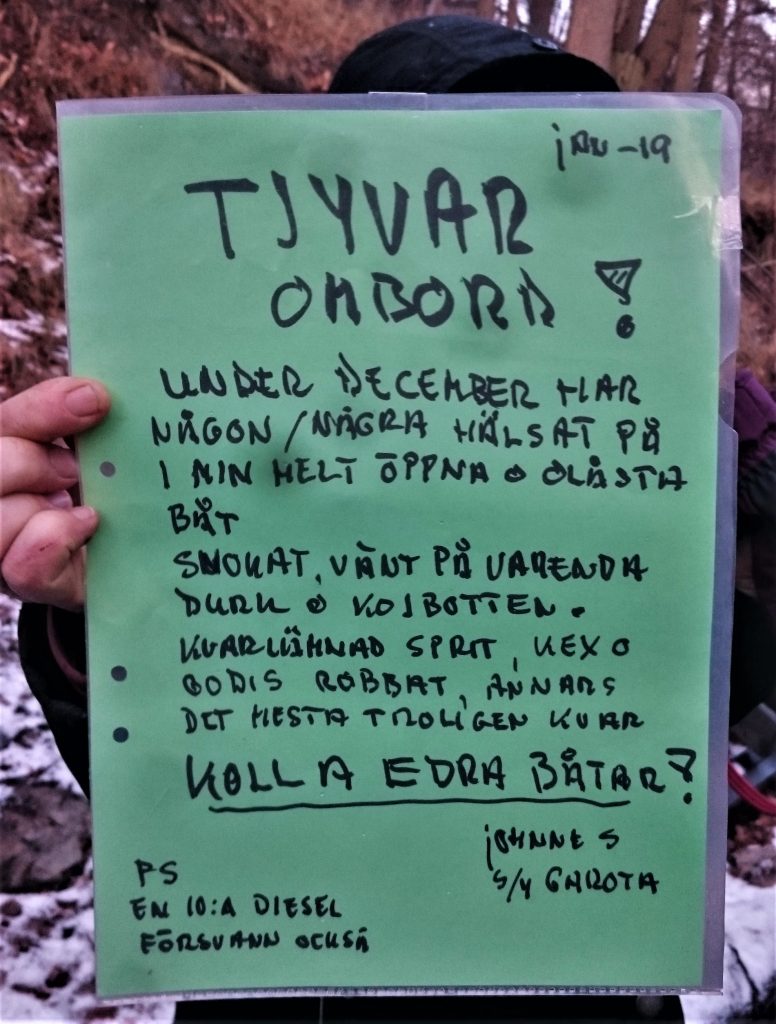 jan -19
TJYVAR
OMBORD !
UNDER DECEMBER HAR
NÅGON / NÅGRA HÄLSAT PÅ
I MIN HELT ÖPPNA O OLÅSTA
BÅT
SNOKAT, VÄNT PÅ VARENDA
DURK O KOJBOTTEN.
KVARLÄMNAD SPRIT, KEX O
GODIS RÖBBAT, ANNARS
DET MESTA TROLIGEN KVAR
KOLLA EDRA BÅTAR!
JOHNNE S
S/Y GAROTA
PS
EN 10:A DIESEL
FÖRSVANN OCKSÅ